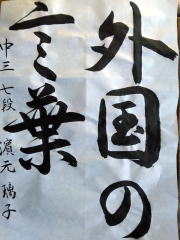 外国の
言葉
中三 七段 濵元 璃子